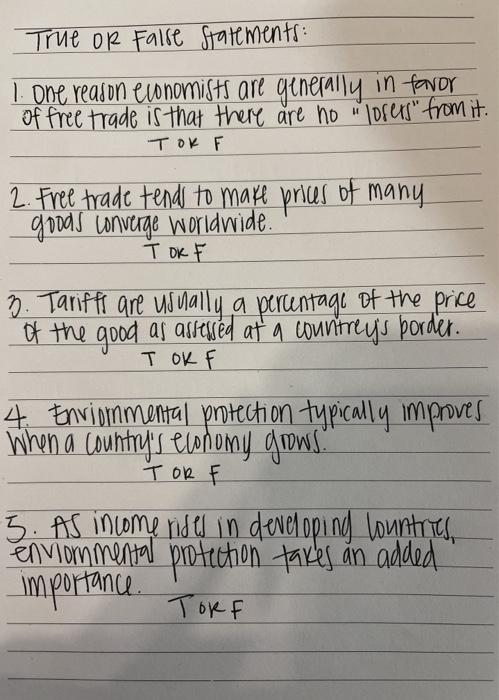 True OR False Statements:
1. One reason economists are generally in favor
of free trade is that there are no "losers" from it.
T OR F
2. Free trade tends to make prices of many
goods converge worldwide.
T OR F
3. Tariffs are usually a percentage of the price
of the good as assessed at a countrey's border.
T OR F
4. Enviornmental protection typically improves
when a country's economy grows.
T OR F
5. As income rises in developing countries,
enviornmental protection takes an added
importance.
T OR F